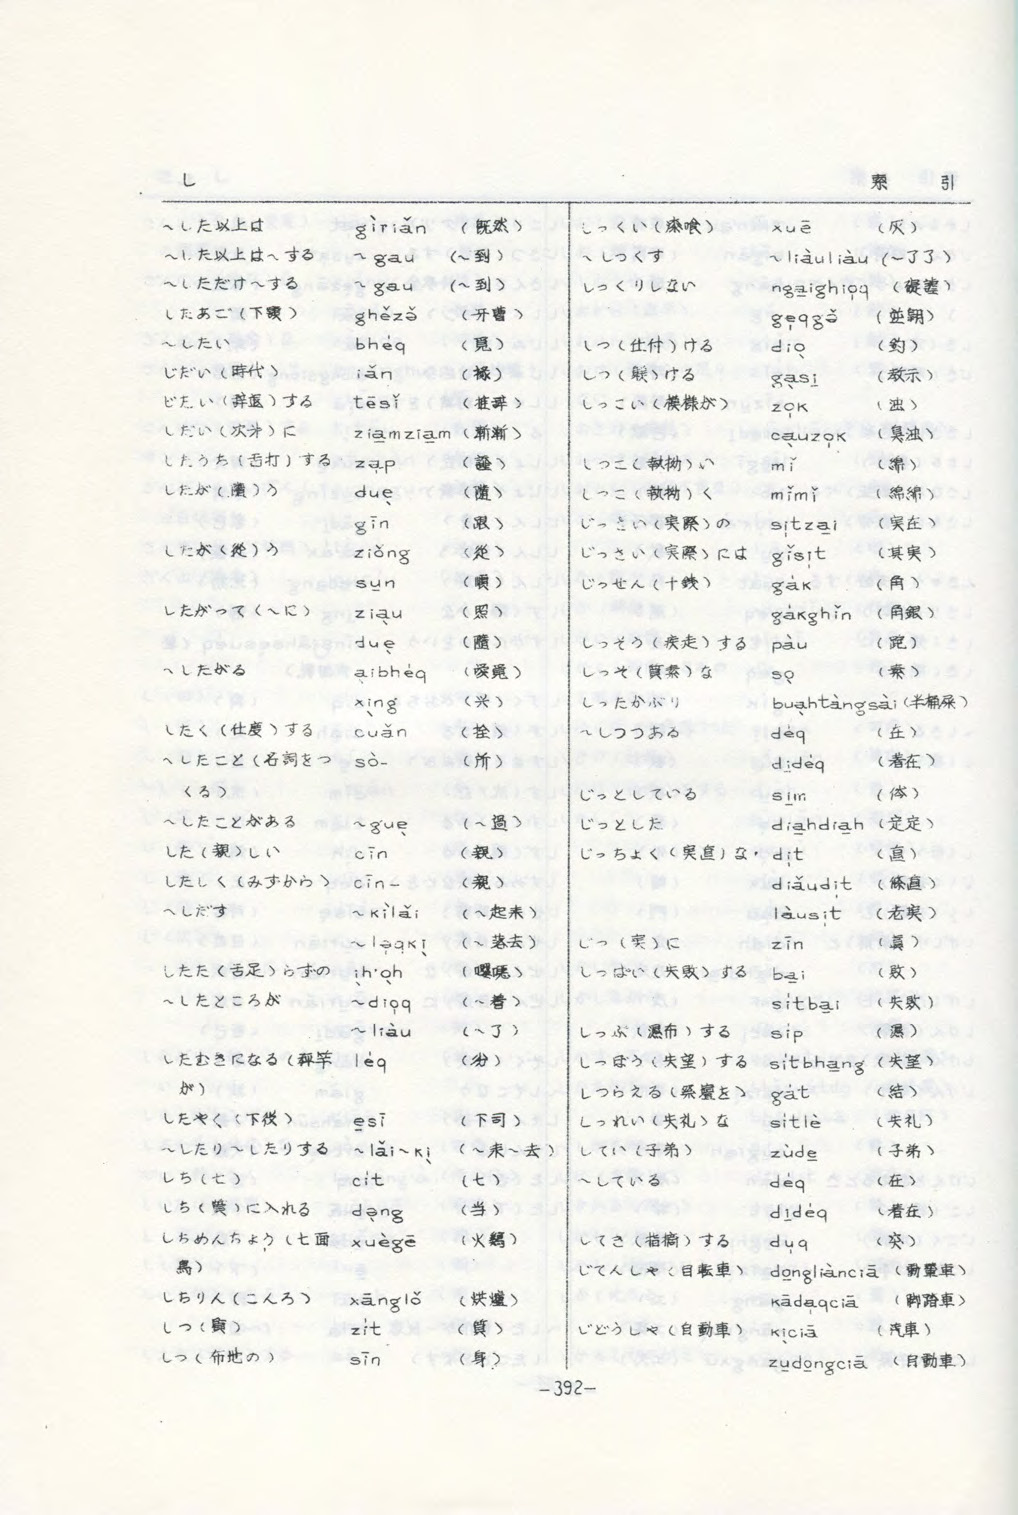 し
索 引
～した以上は gìrián (既然)
～した以上は～する ～gau (～到)
～しただけ～する ～gau (～到)
したあご(下顎) ghězǒ (牙曹)
～したい bhéq (覓)
じだい(時代) (椽)
じたい(辞退)する tēsǐ (推辞)
しだい(次第)に ziamziam (漸漸)
したうち(舌打)する zap
したが(随)う due (随)
gīn (跟)
したが(従)う ziǒng (従)
sun (順)
したがって(～に) ziau (照)
due (隨)
～したがる aibhéq (愛覓)
xing (兴)
したく(仕度)する cuǎn (拴)
～したこと(名詞をつ sò- (所)
くる)
～したことがある ～gue (～過)
した(親)しい cīn (親)
したしく(みずから) cīn- (親)
～しだす ～kìlǎi (～起来)
～laqki (～落去)
したた(舌足)らずの
～したところが ～dioq (～着)
～liàu (～了)
したむきになる(秤竿 léq
が)
したやく(下役) esī (下司)
～したり～したりする ～lǎi～ki (～来～去)
しち(七) cít (七)
しち(質)に入れる dang (当)
しちめんちょう(七面 xuègē (火鶏)
鳥)
しちりん(こんろ) xānglǒ (烘爐)
しつ(質) zít (質)
しつ(布地の) sīn (身)
しっくい(漆喰) xuē (灰)
～しつくす ～liàuliàu (～了了)
しっくりしない ngaighioq
geqgǒ
しつ(仕付)ける dio (釣)
しつ(躾)ける gasi (教示)
しつこい(模様が) zok (浊)
cauzok (臭浊)
しつこ(執拗)い mǐ (綿)
しつこ(執拗)く mǐmǐ (綿綿)
じっさい(実際)の sitzai (実在)
じっさい(実際)には gǐsit (其実)
じっせん(十銭) gák (角)
gákghǐn (角銀)
しっそう(疾走)する pàu (跑)
しっそ(質素)な so (素)
しったかぶり buahtàngsài (半桶屎)
～しつつある déq (在)
didéq (著在)
じっとしている sim
じっとした diahdiah (定定)
じっちょく(実直)な dit (直)
diǎudit (條直)
làusit (老実)
じつ(実)に zīn (眞)
しっぱい(失敗)する bai (敗)
sítbai (失敗)
しっぷ(湿布)する síp (濕)
しつぼう(失望)する sítbhang (失望)
しつらえる(祭壇を) gát (結)
しつれい(失礼)な sítlè (失礼)
してい(子弟) zùde (子弟)
～している déq (在)
didéq (着在)
してき(指摘)する duq (突)
じてんしゃ(自転車) dongliànciā
kādaqciā (脚踏車)
じどうしゃ(自動車) kiciā (汽車)
zudongciā (自動車)
-392-